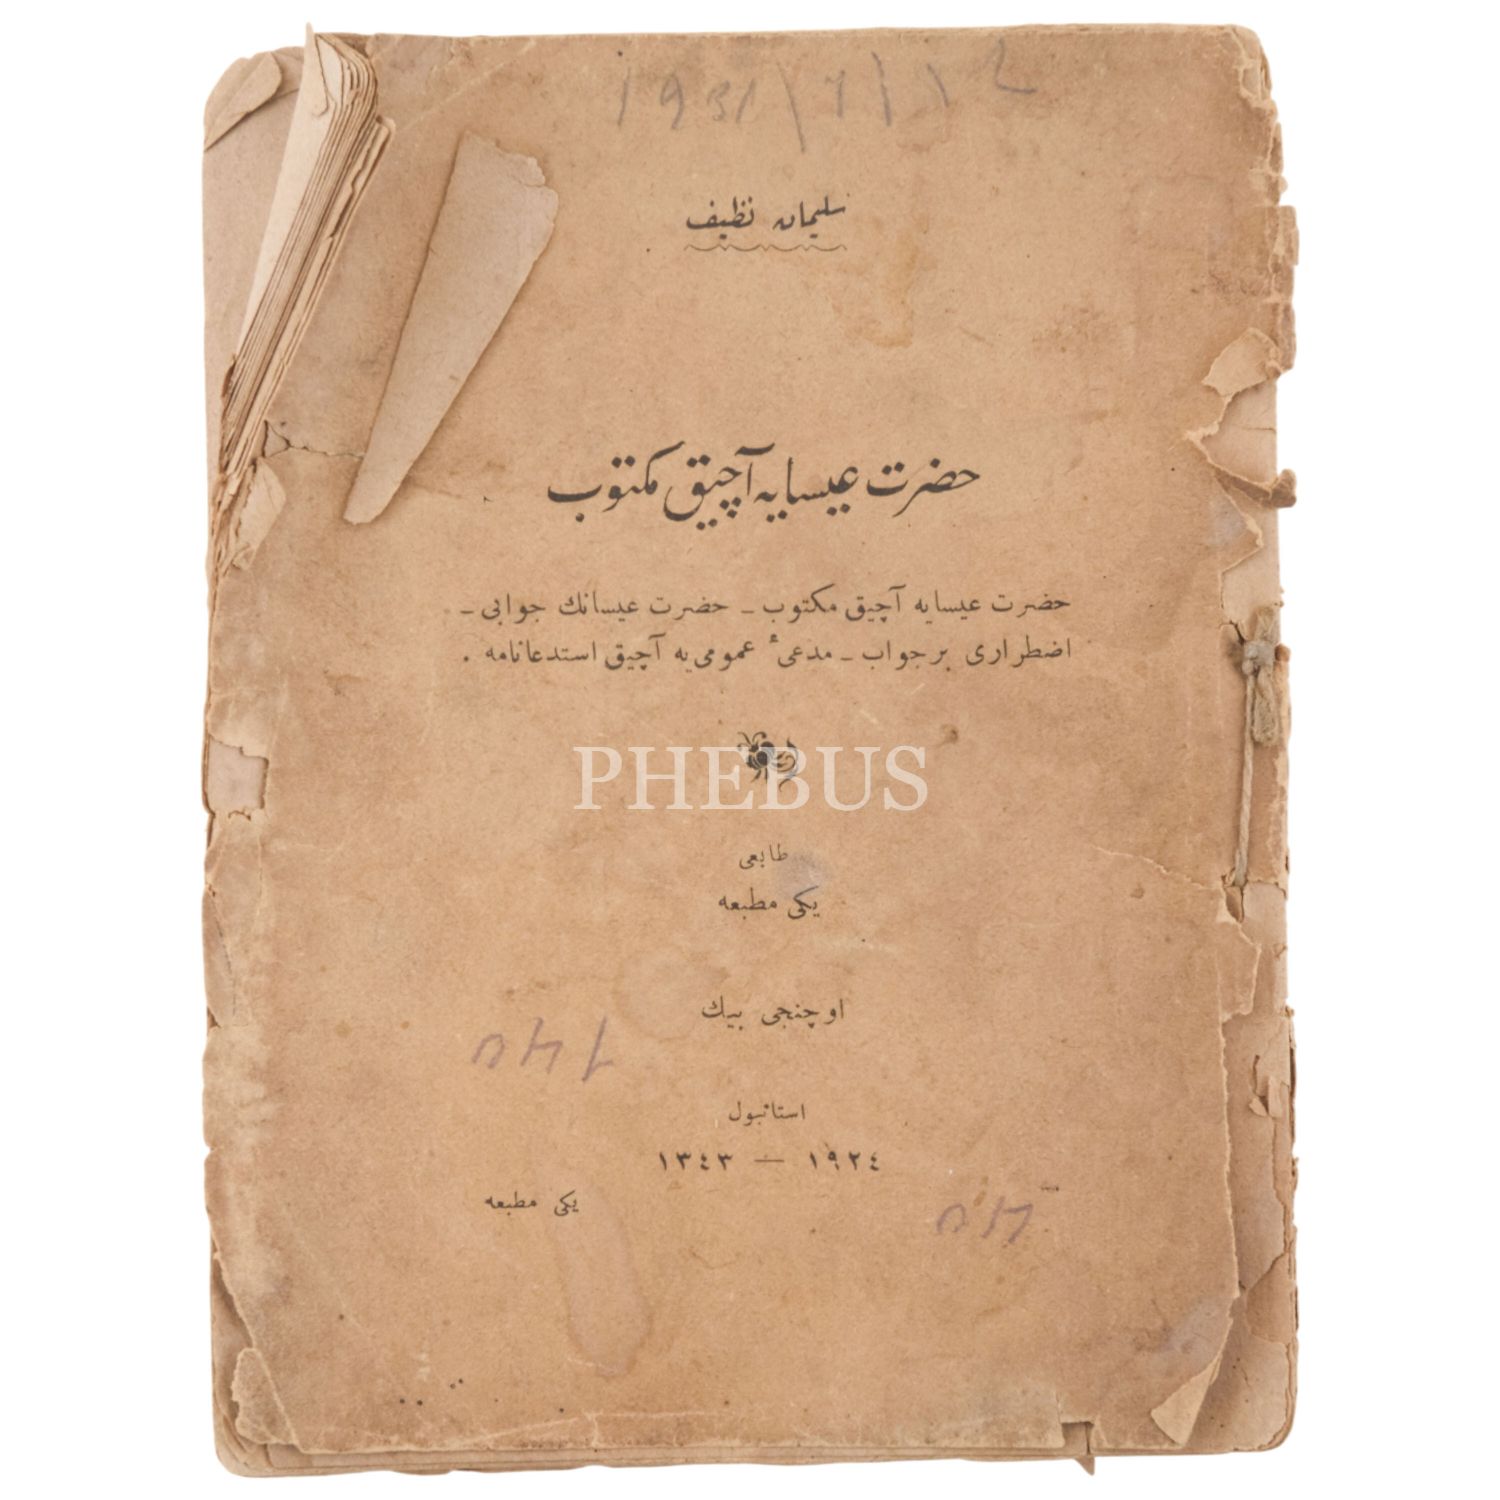 سلیمان نظیف
حضرت عیسایه آچیق مکتوب
حضرت عیسایه آچیق مکتوب ـ حضرت عیسانك جوابی ـ
اضطراری بر جواب ـ مدعیٔ عمومی یه آچیق استدعانامه .
PHEBUS
طابعی
یکی مطبعه
اوچنجی بیك
استانبول
١٣٤٣ — ١٩٢٤
یکی مطبعه